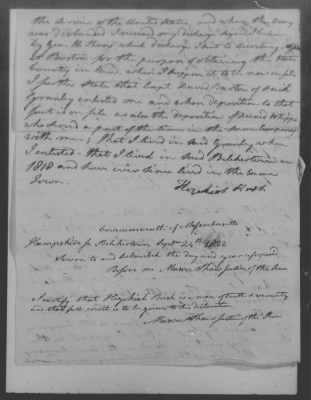 the service of the United States, and when the army
was disbanded I received my discharge signed I believe
by Gen. H. Knox which discharge I sent to
at Boston for the purpose of obtaining the State
bounty in land, when I
I further State that Capt. David Barton of said
Granby enlisted me and whose deposition to that
fact is on file as also the deposition of David Whipple
who served a part of the time in the same Company
with me; that I lived in said Granby when
I enlisted - that I lived in said Belchertown in
1818 and have ever since lived in the same
Town.
Hezekiah Bush
Commonwealth of Massachusetts
Hampshire ss Belchertown Septr. 24th
Sworn to and subscribed the day and year aforesaid
Before me Mason Shaw justice of the Peace
I certify that Hezekiah Bush is a man of truth & veracity
and that full credit is to be given to his declaration
Mason Shaw justice of the Peace